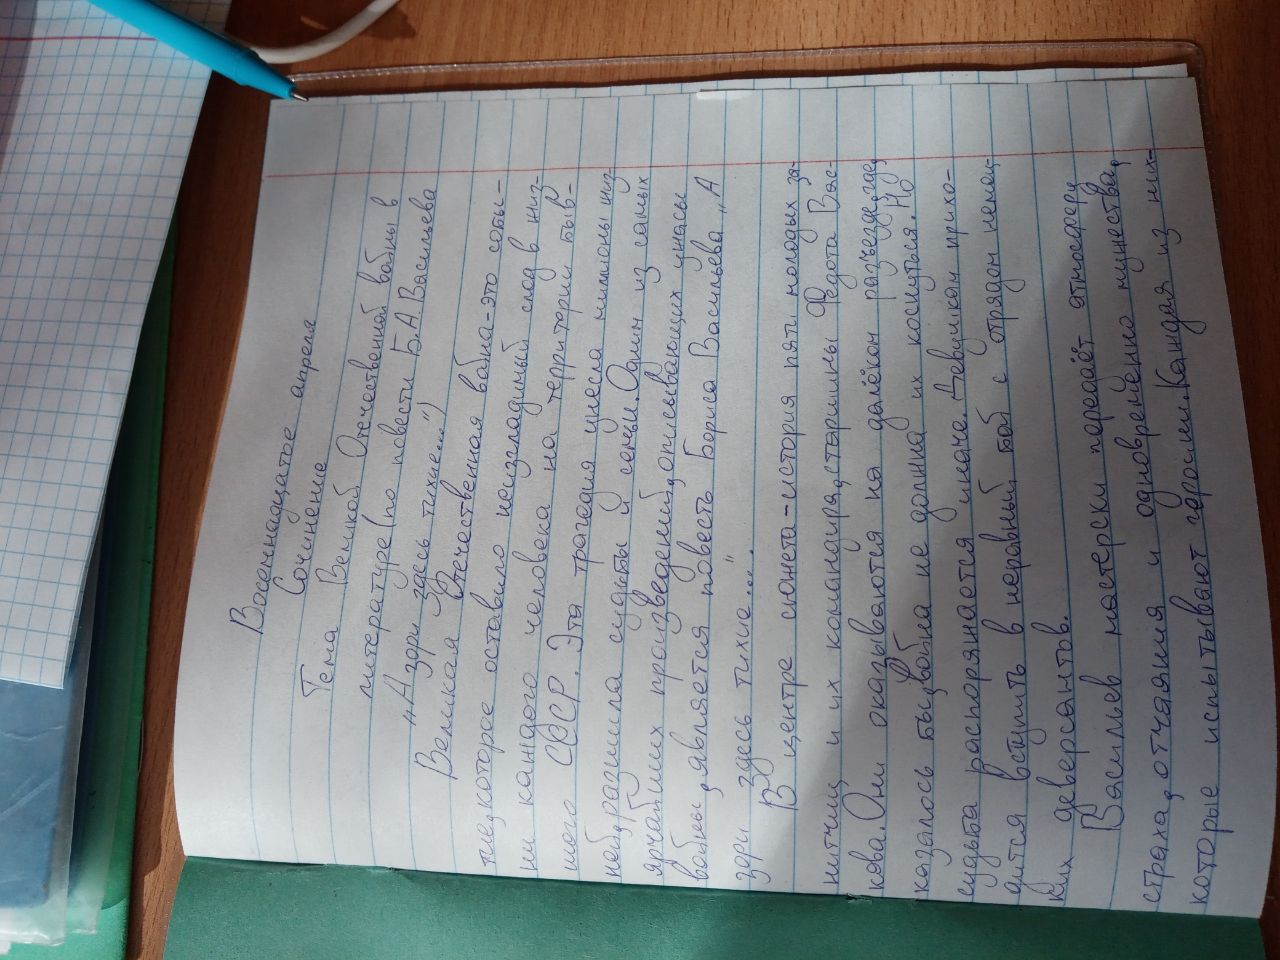 Восемнадцатое апреля
Сочинение
Тема Великой Отечественной войны в
литературе (по повести Б.А Васильева
„А зори здесь тихие...")
Великая Отечественная война-это собы-
тие, которое оставило неизгладимый след в жиз-
ни каждого человека на территории быв-
шего СССР. Эта трагедия унесла миллионы жиз-
ней, разбила судьбы и семьи. Один из самых
ярчайших произведений, описывающих ужасы
войны, является повесть Бориса Васильева „А
зори здесь тихие...".
В центре сюжета-история пяти молодых зе-
нитчиц и их командира, старшины Федота Вас-
кова. Они оказываются на далёком разъезде, где,
казалось бы, война не должна их коснуться. Но
судьба распоряжается иначе. Девушкам прихо-
дится вступить в неравный бой с отрядом немец-
ких диверсантов.
Васильев мастерски передаёт атмосферу
страха, отчаяния и одновременно мужества,
которые испытывают героини. Каждая из них-